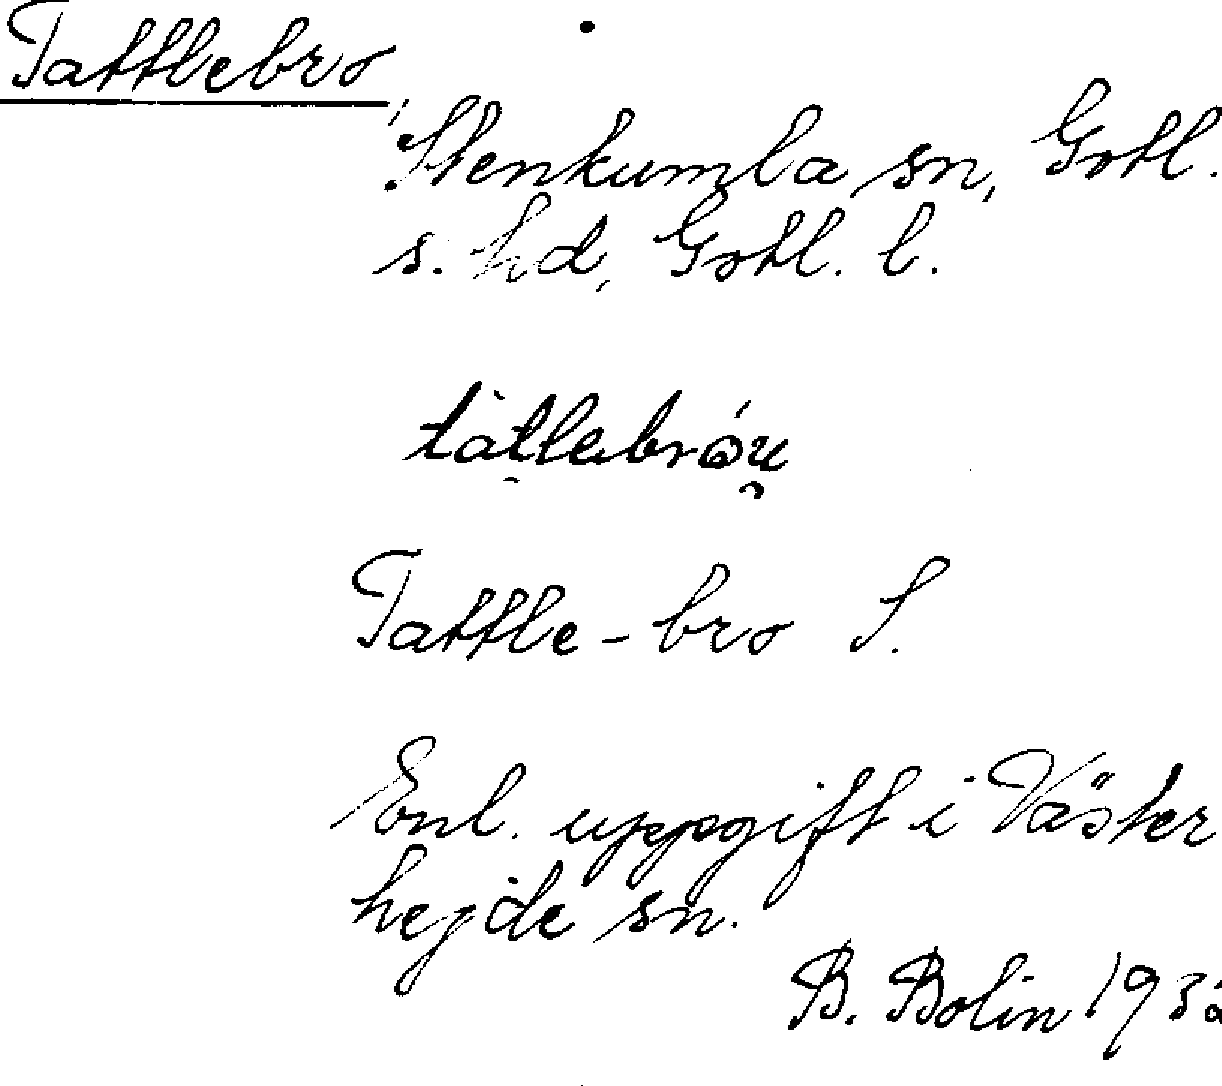 Tattlebro,
Stenkumla sn, Gotl.
s. hd, Gotl. l.
tàtlebróu̯
Tattle-bro S.
Enl. uppgift i Väster
hejde sn.
B. Bolin 1932